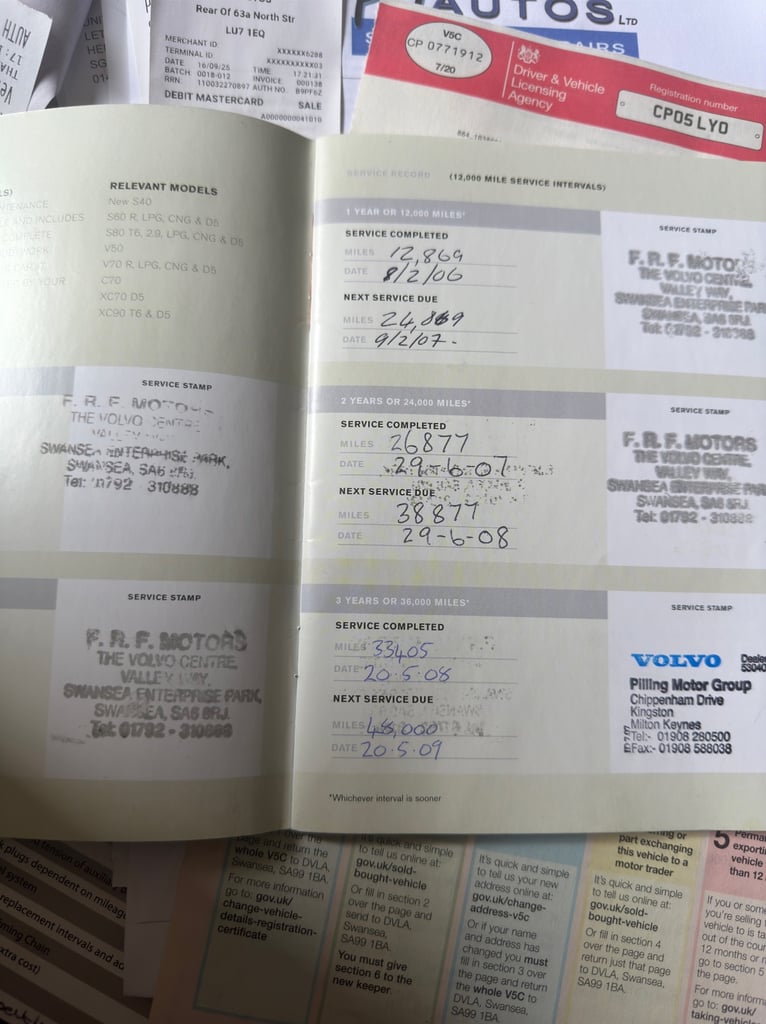 Rear Of 63a North Str
LU7 1EQ
MERCHANT ID
XXXXXX6288
TERMINAL ID
DATE 16/09/25 TIME 17:21:31
BATCH 0018-012 INVOICE 000138
RRN 110032270897 AUTH NO. B9PF6Z
DEBIT MASTERCARD SALE
A0000000041010
AUTOS LTD
V5C
CP 0771912
7/20
Driver & Vehicle
Licensing
Agency
Registration number
CP05 LYO
RELEVANT MODELS
New S40
AND INCLUDES
S60 R, LPG, CNG & D5
COMPLETE
S80 T6, 2.9, LPG, CNG & D5
V50
V70 R, LPG, CNG & D5
C70
BY YOUR
XC70 D5
XC90 T6 & D5
SERVICE STAMP
F. R. F. MOTORS
THE VOLVO CENTRE
VALLEY WAY
SWANSEA ENTERPRISE PARK,
SWANSEA, SA6 8RJ
Tel: 01792 - 310888
SERVICE STAMP
F. R. F. MOTORS
THE VOLVO CENTRE,
VALLEY WAY,
SWANSEA ENTERPRISE PARK,
SWANSEA, SA6 8RJ.
Tel: 01792 - 310888
SERVICE RECORD (12,000 MILE SERVICE INTERVALS)
1 YEAR OR 12,000 MILES*
SERVICE COMPLETED
MILES 12,869
DATE 8/2/06
NEXT SERVICE DUE
MILES 24,869
DATE 9/2/07-
SERVICE STAMP
F. R. F. MOTO
THE VOLVO CENTRE,
VALLEY WAY,
SWANSEA ENTERPRISE PAR
SWANSEA, SA6 8RJ.
Tel: 01792 - 310888
2 YEARS OR 24,000 MILES*
SERVICE COMPLETED
MILES 26877
DATE 29-6-07
NEXT SERVICE DUE
MILES 38877
DATE 29-6-08
SERVICE STAMP
F. R. F. MOTORS
THE VOLVO CENTRE,
VALLEY WAY,
SWANSEA ENTERPRISE PARK
SWANSEA, SA6 8RJ.
Tel: 01792 - 310888
3 YEARS OR 36,000 MILES*
SERVICE COMPLETED
MILES 33405
DATE 20.5.08
NEXT SERVICE DUE
MILES 48,000
DATE 20.5.09
SERVICE STAMP
VOLVO
Deale
53040
Pilling Motor Group
Chippenham Drive
Kingston
Milton Keynes
Tel:- 01908 280500
Fax:- 01908 588038
*Whichever interval is sooner
tension of auxilia
plugs dependent on mileag
system
replacement intervals and ac
ming Chain
xtra cost)
over the
page and return the
whole V5C to DVLA,
Swansea, SA99 1BA.
For more information
go to: gov.uk/
change-vehicle-
details-registration-
certificate
It's quick and simple
to tell us online at:
gov.uk/sold-
bought-vehicle
Or fill in section 2
over the page and
send to DVLA,
Swansea,
SA99 1BA.
You must give
section 6 to the
new keeper.
It's quick and simple
to tell us your new
address online at:
gov.uk/change-
address-v5c
Or if your name
and address has
changed you must
fill in section 3 over
the page and return
the whole V5C to
DVLA, Swansea,
SA99 1BA.
or
part exchanging
this vehicle to a
motor trader
It's quick and simple
to tell us online at:
gov.uk/sold-
bought-vehicle
Or fill in section 4
over the page and
return just that page
to DVLA, Swansea,
SA99 1BA.
5
Perma
exporti
vehicle
than 12
If you or som
you're selling
vehicle to is ta
out of the coun
12 months or m
go to section 5
the page.
For more inform
go to: gov.uk/
taking-vehicle